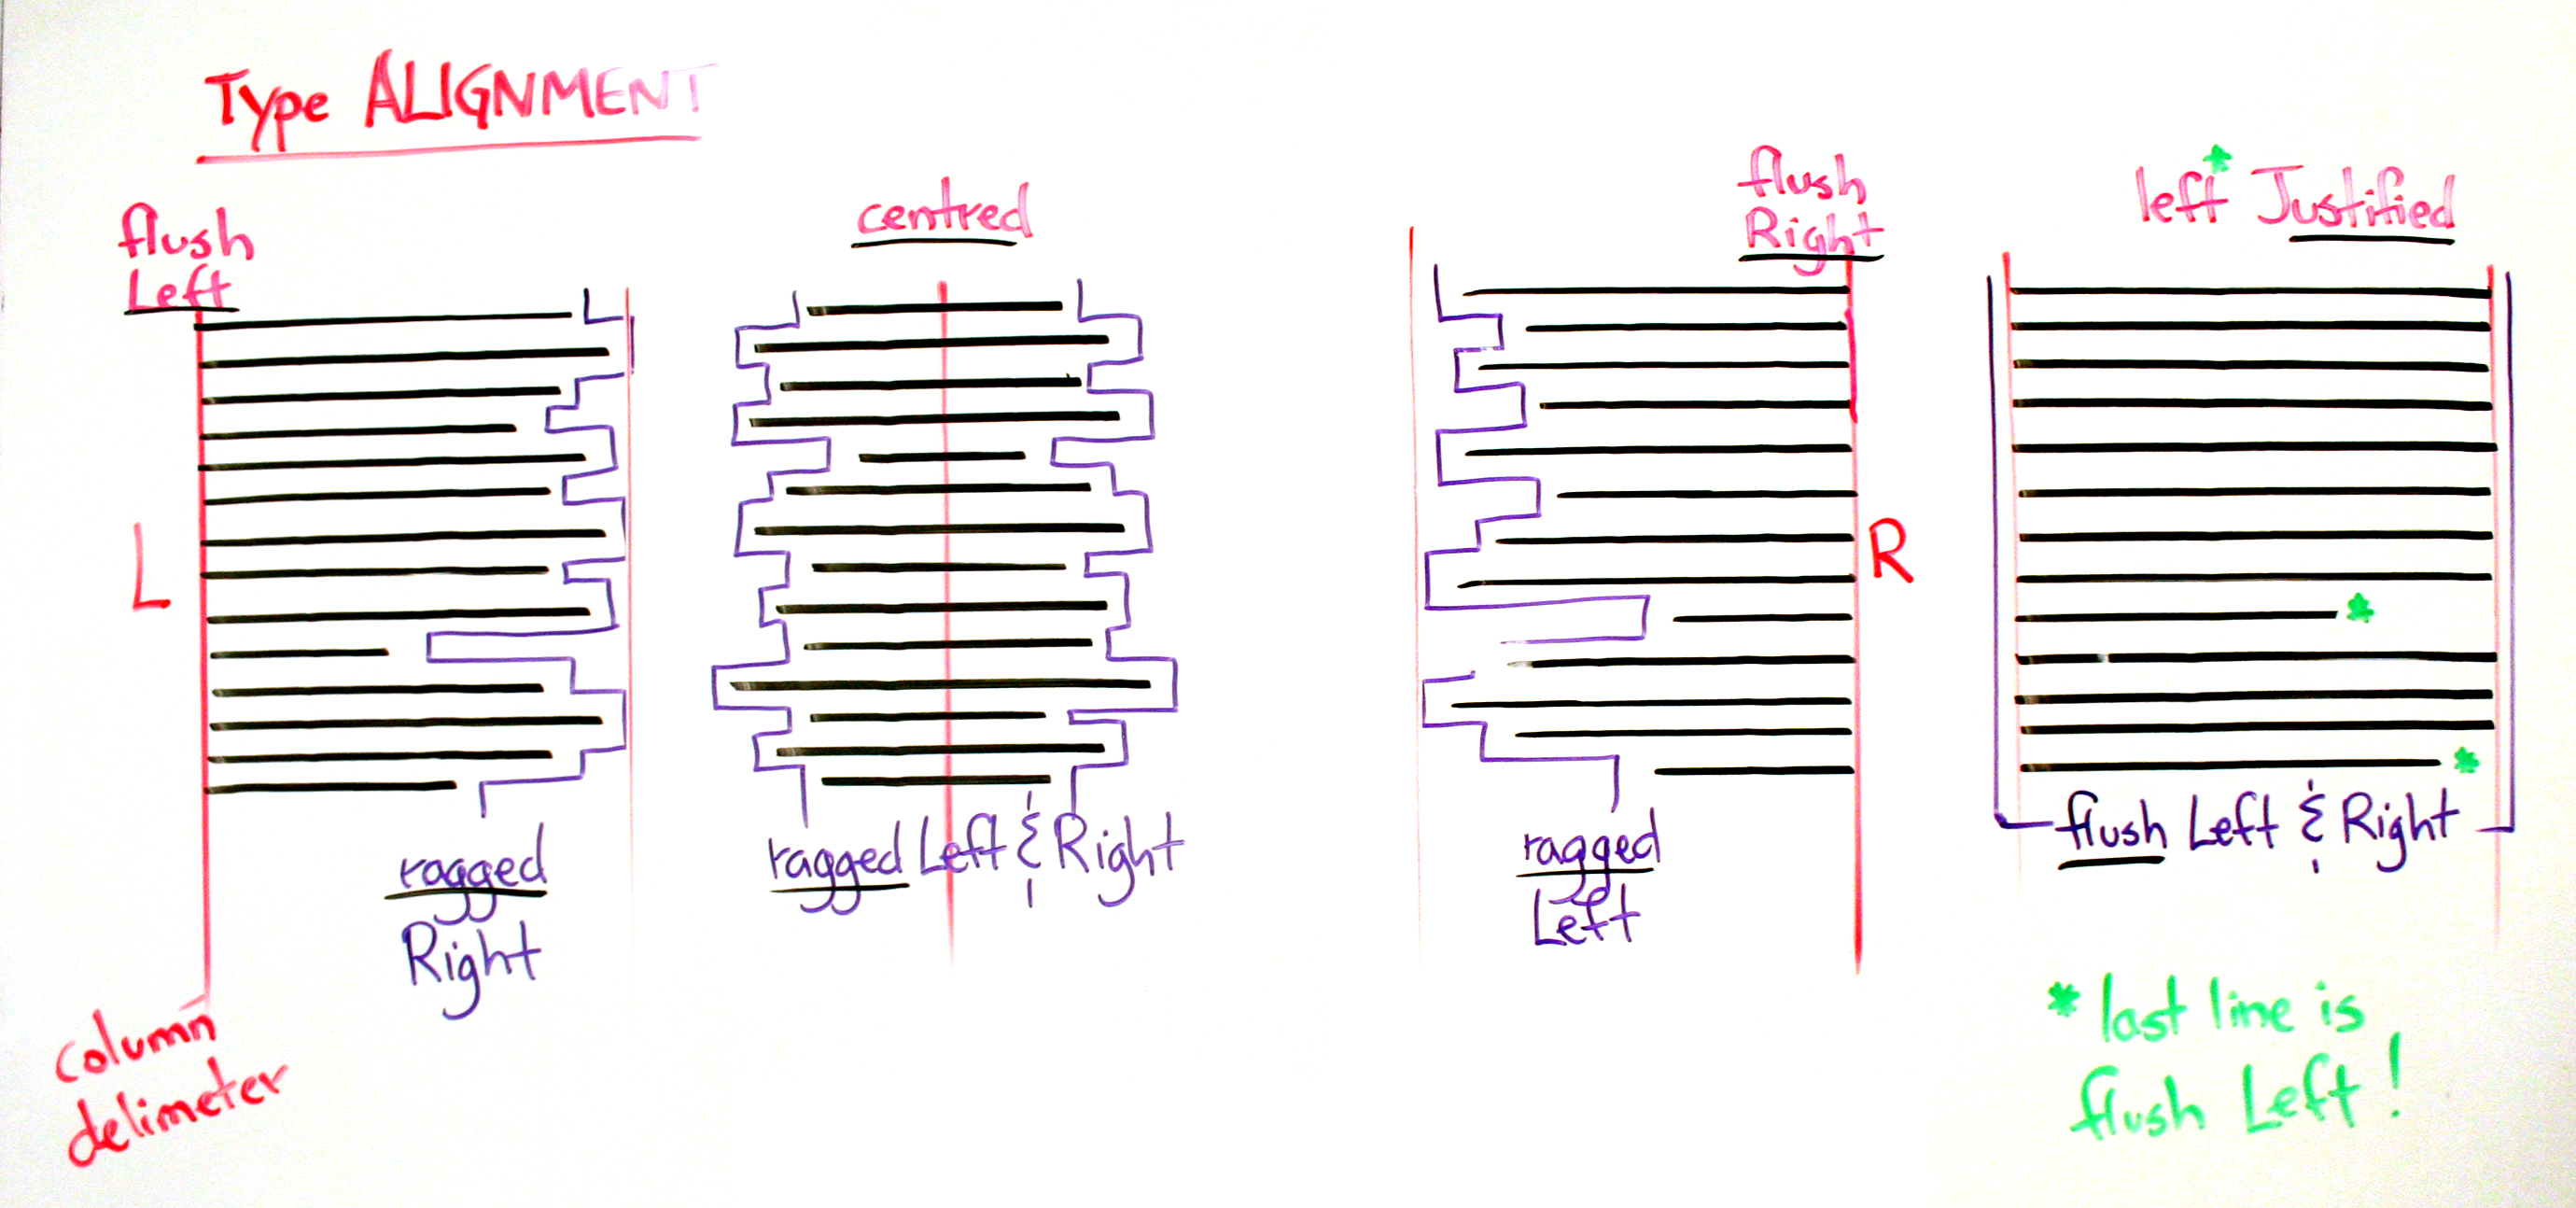 Type ALIGNMENT
flush
Left
L
ragged
Right
column
delimeter
centred
ragged Left & Right
flush
Right
R
ragged
Left
left* Justified
*
*
flush Left & Right
* last line is
flush Left!